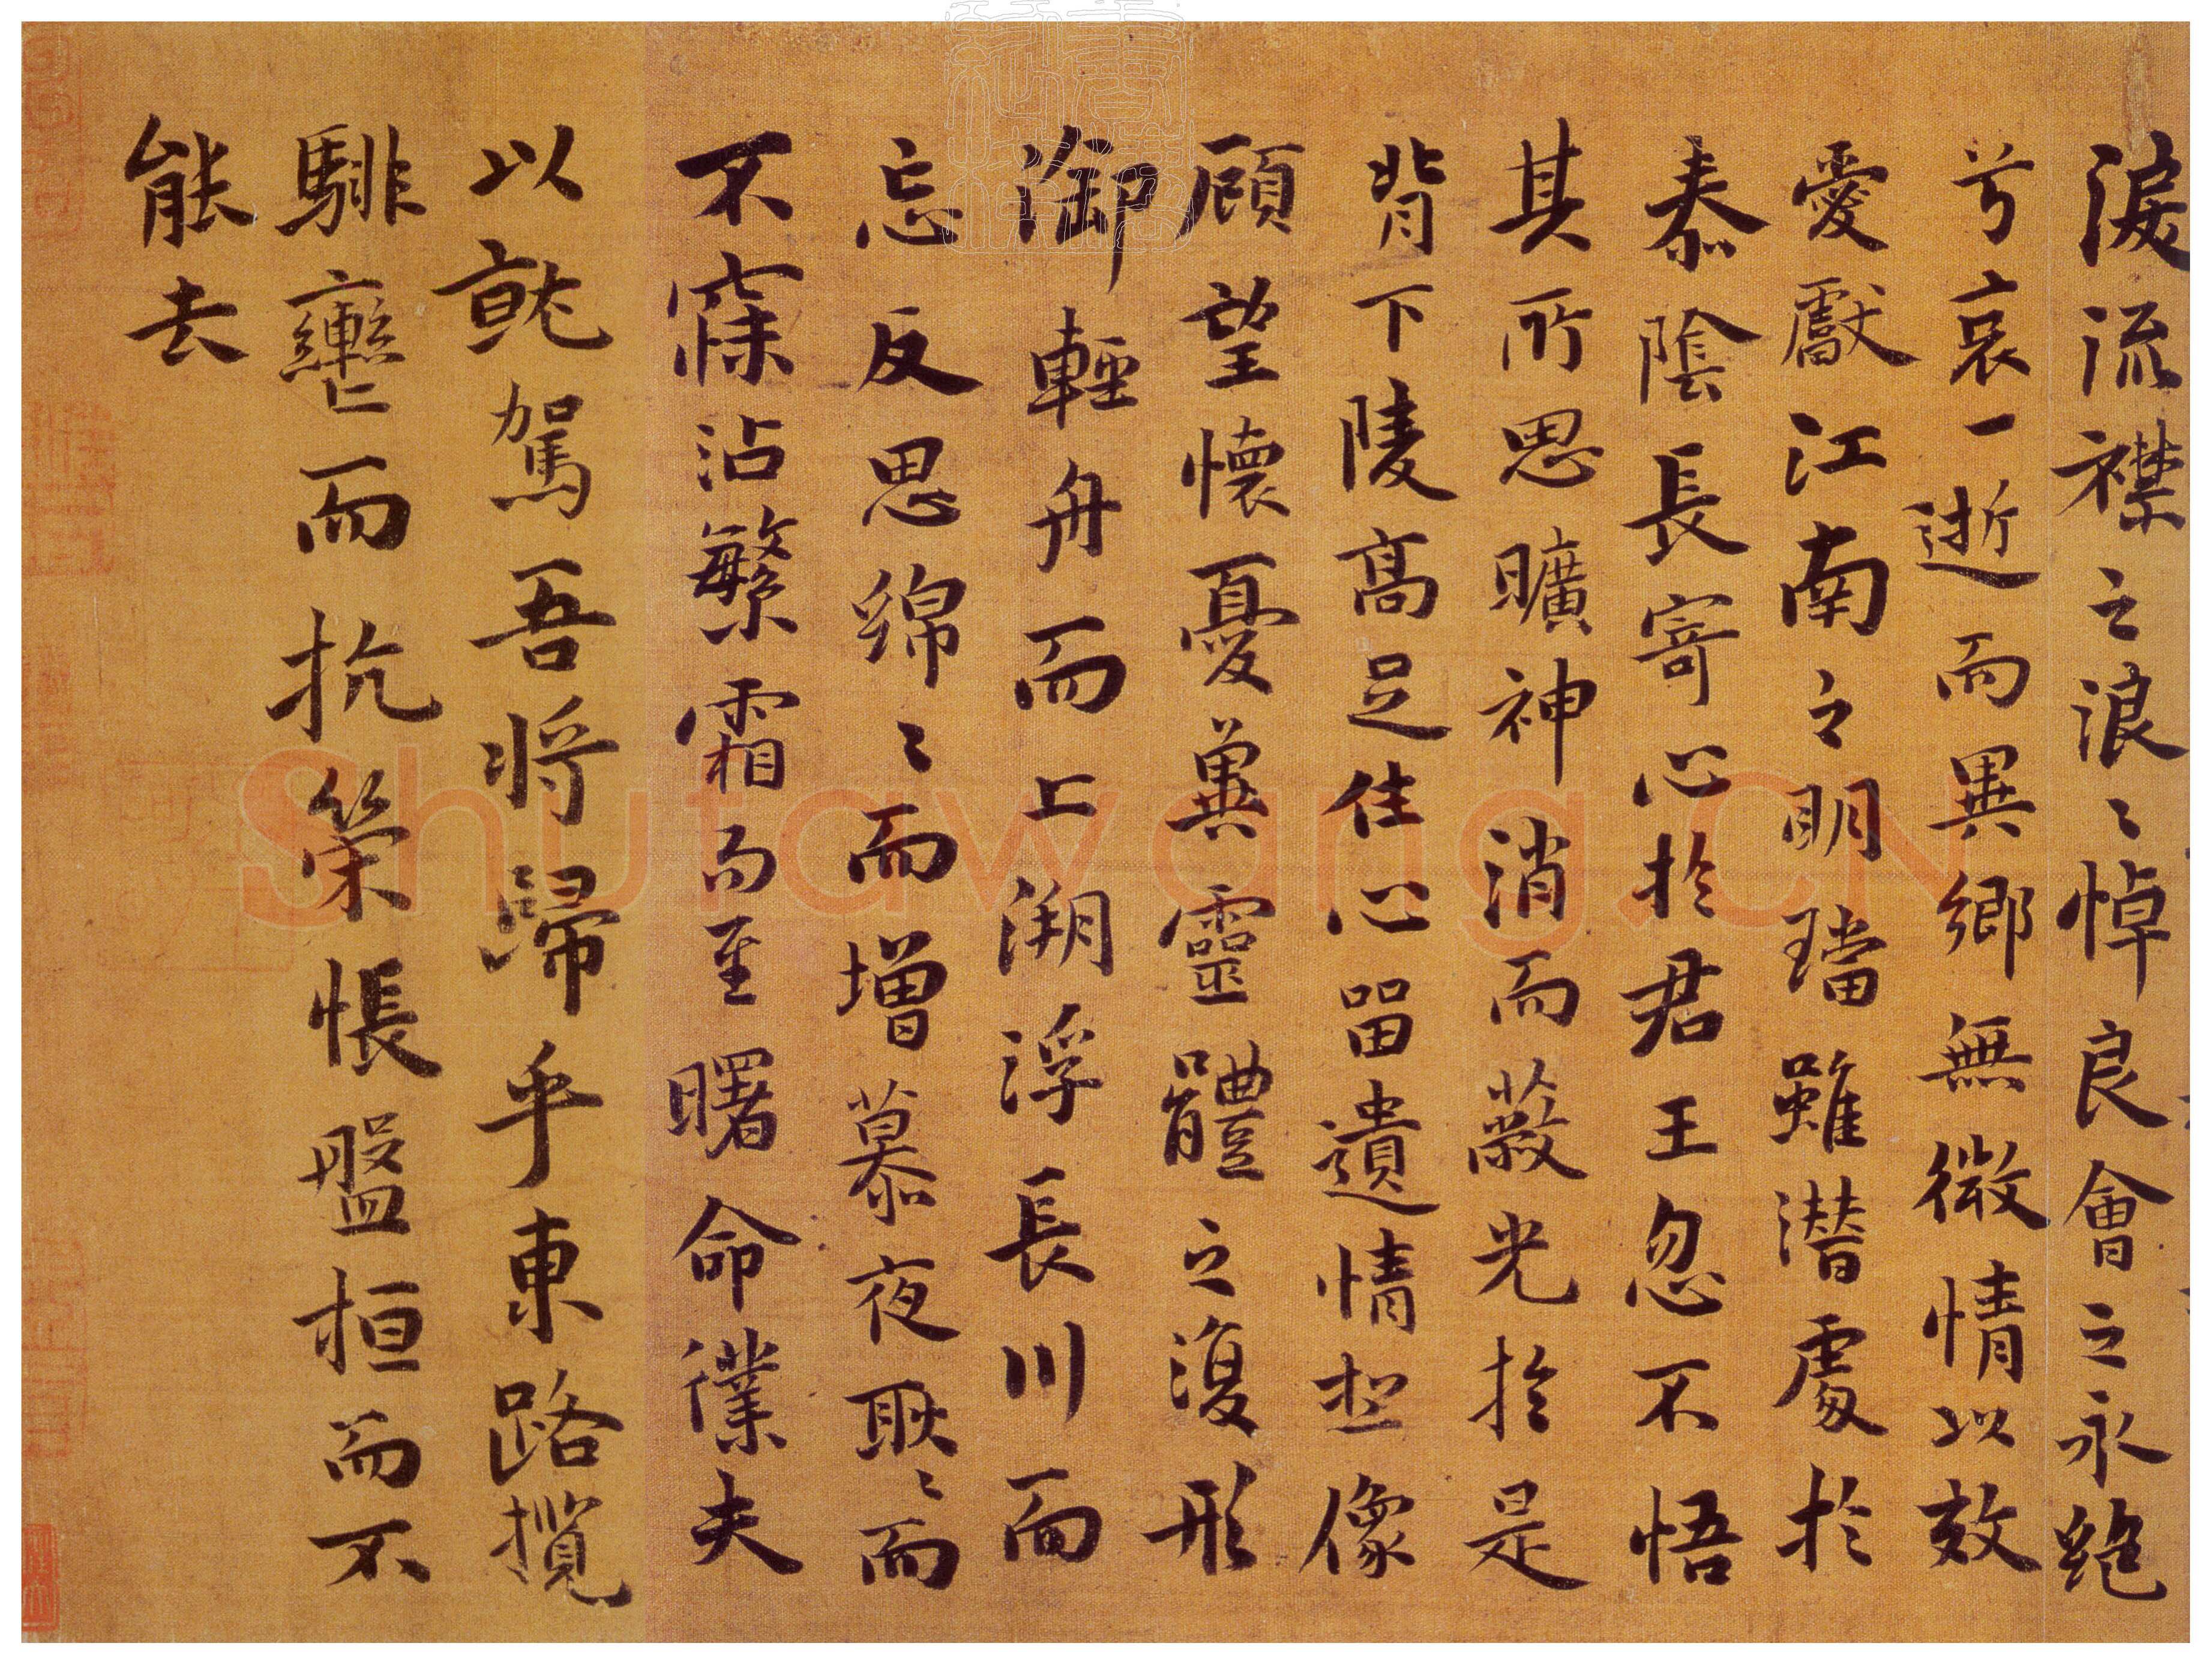 淚流襟之浪〻悼良會之永絕
兮哀一逝而異鄉無微情以效
愛獻江南之明璫雖潛處於
泰陰長寄心於君王忽不悟
其所思曠神消而蔽光於是
背下陵高足住心留遺情想像
顧望懷憂冀靈體之復形
御輕舟而上溯浮長川而
忘反思綿〻而增慕夜耿〻而
不寐沾繁霜而至曙命僕夫
以就駕吾將歸乎東路攬
騑轡而抗策悵盤桓而不
能去
Shufawang.CN